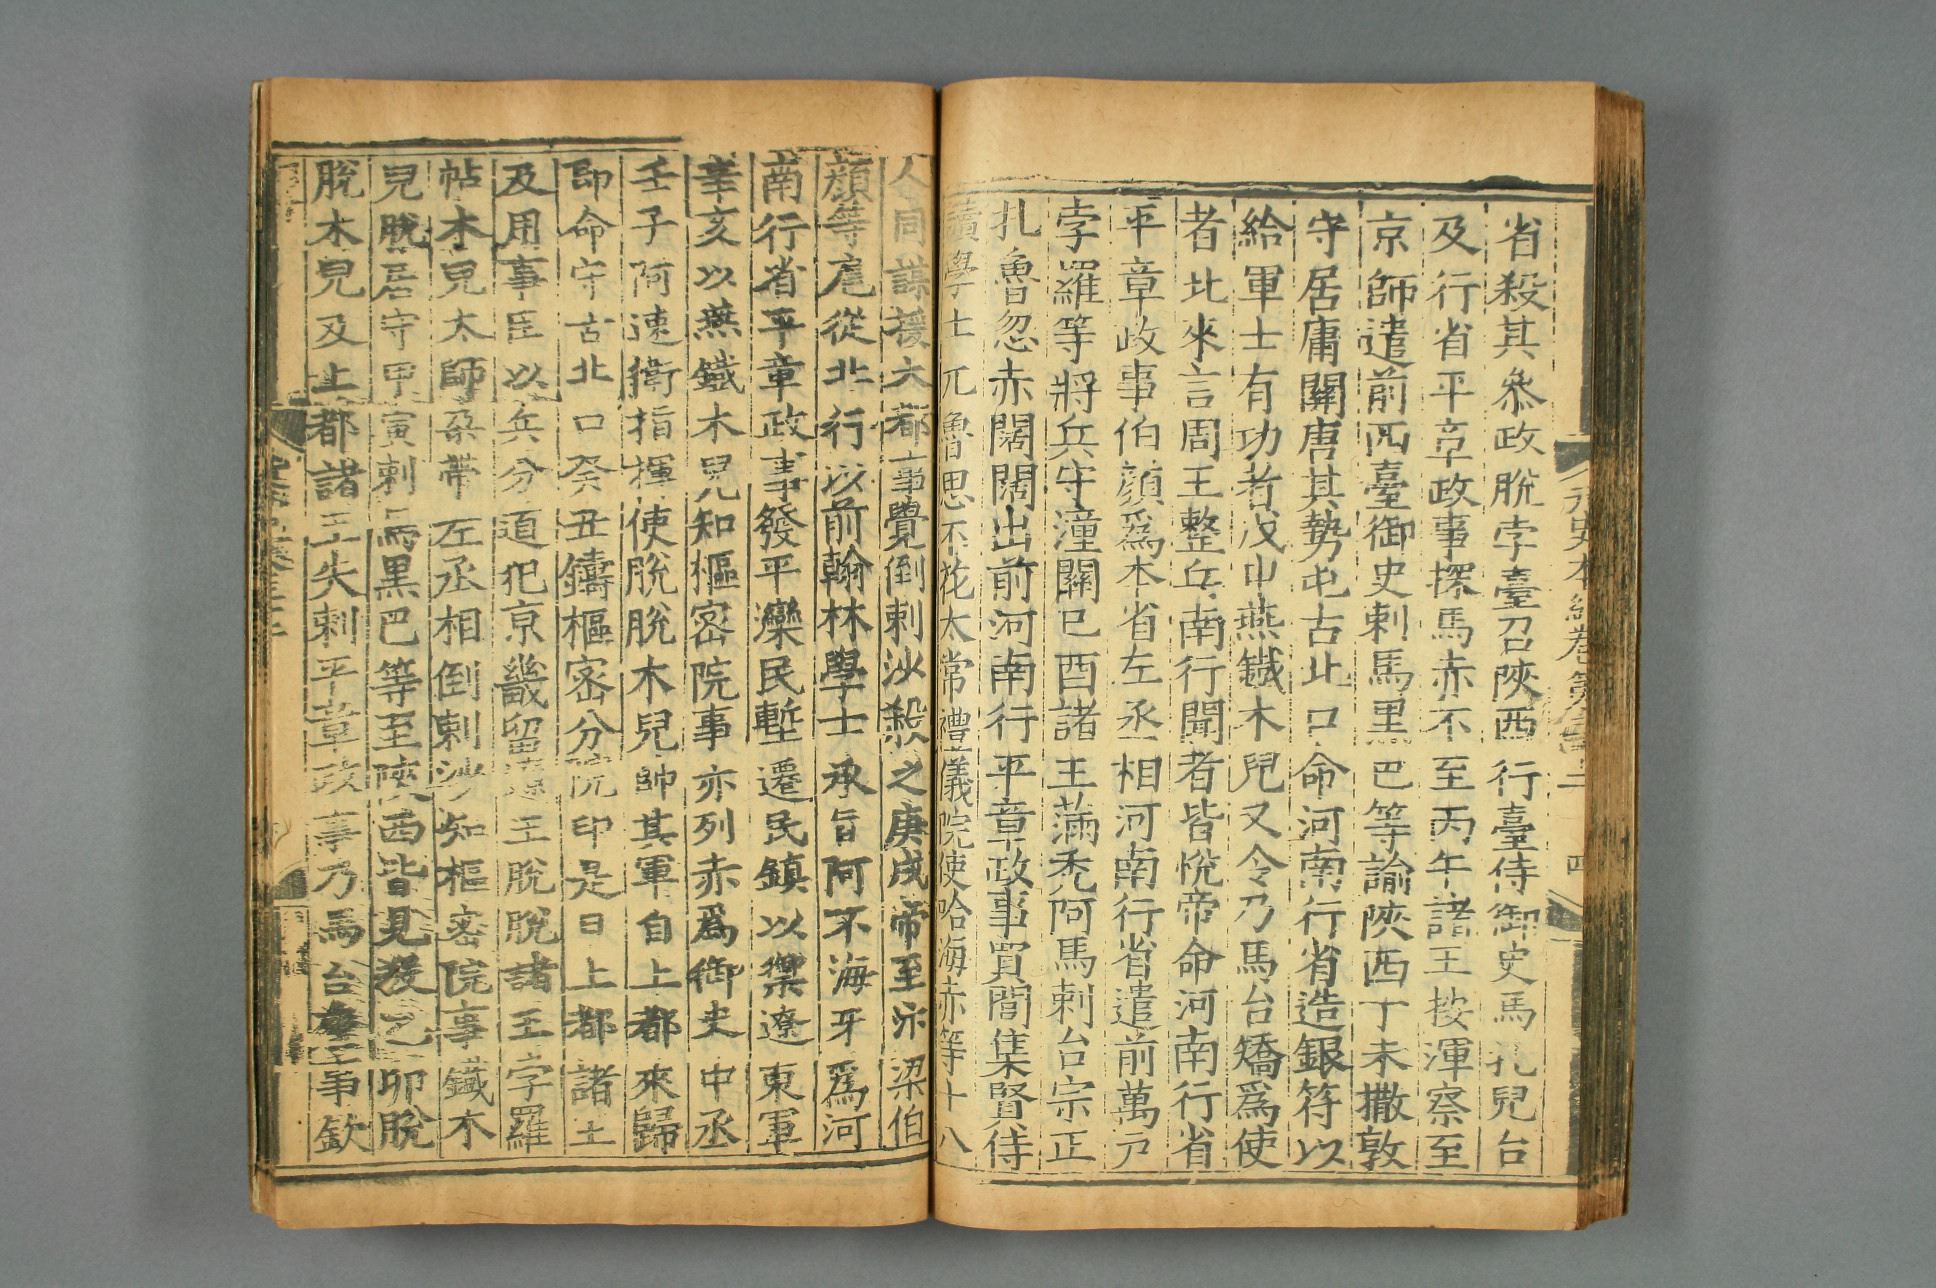 元史本紀卷第三十二
四
省殺其叅政脫孛臺召陝西行臺侍御史馬扎兒台
及行省平章政事探馬赤不至丙午諸王按渾察至
京師遣前西臺御史剌馬黑巴等諭陝西丁未撒敦
守居庸關唐其勢屯古北口命河南行省造銀符以
給軍士有功者戊申燕鐵木兒又令乃馬台矯爲使
者北來言周王整兵南行聞者皆悅帝命河南行省
平章政事伯顏爲本省左丞相河南行省遣前萬戶
孛羅等將兵守潼關己酉諸王滿禿阿馬剌台宗正
扎魯忽赤闊闊出前河南行平章政事買閭集賢侍
讀學士兀魯思不花太常禮儀院使哈海赤等十八
人同謀援大都事覺倒剌沙殺之庚戌帝至汴梁伯
顏等扈從北行以前翰林學士承旨阿不海牙爲河
南行省平章政事發平灤民塹遷民鎮以禦遼東軍
辛亥以燕鐵木兒知樞密院事亦列赤爲御史中丞
壬子阿速衛指揮使脫脫木兒帥其軍自上都來歸
即命守古北口癸丑鑄樞密分院印是日上都諸王
及用事臣以兵分道犯京畿留遼王脫脫諸王孛羅
帖木兒太師朶帶左丞相倒剌沙知樞密院事鐵木
兒脫居守甲寅剌馬黑巴等至陝西皆見殺乙卯脫
脫木兒及上都諸王失剌平章政事乃馬台詹事欽